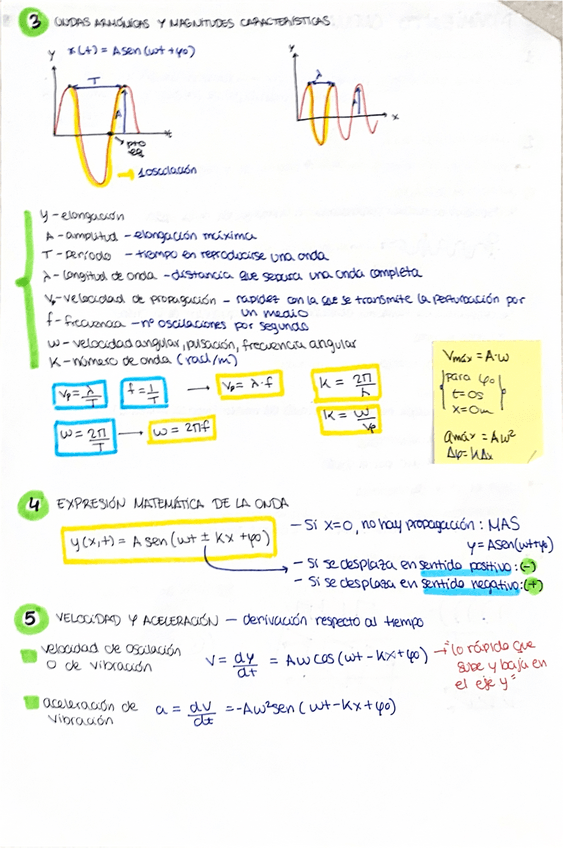 3 ONDAS ARMÓNICAS Y MAGNITUDES CARACTERÍSTICAS
x(t) = A sen(ωt + φo)
y
T
A
x
pto eq
1 oscilación
y
λ
A
x
y - elongación
A - amplitud - elongación máxima
T - período - tiempo en reproducirse una onda
λ - longitud de onda - distancia que separa una onda completa
Vp - velocidad de propagación - rapidez con la que se transmite la perturbación por
un medio
f - frecuencia - nº oscilaciones por segundo
ω - velocidad angular, pulsación, frecuencia angular
K - número de onda (rad/m)
Vp = λ/T f = 1/T → Vp = λ · f K = 2π/λ
ω = 2π/T → ω = 2πf K = ω/Vp
Vmáx = A·ω
para φo
t = 0s
x = 0m
amáx = Aω²
Δφ = KΔx
4 EXPRESIÓN MATEMÁTICA DE LA ONDA
y(x,t) = A sen(ωt ± Kx + φo)
- Si x=0, no hay propagación: MAS
y = Asen(ωt+φo)
- Si se desplaza en sentido positivo: (-)
- Si se desplaza en sentido negativo: (+)
5 VELOCIDAD Y ACELERACIÓN - derivación respecto al tiempo
velocidad de oscilación
o de vibración
V = dy/dt = Aω cos(ωt - Kx + φo) → "lo rápido que
sube y baja en
el eje y"
aceleración de
vibración
a = dv/dt = -Aω² sen(ωt - Kx + φo)